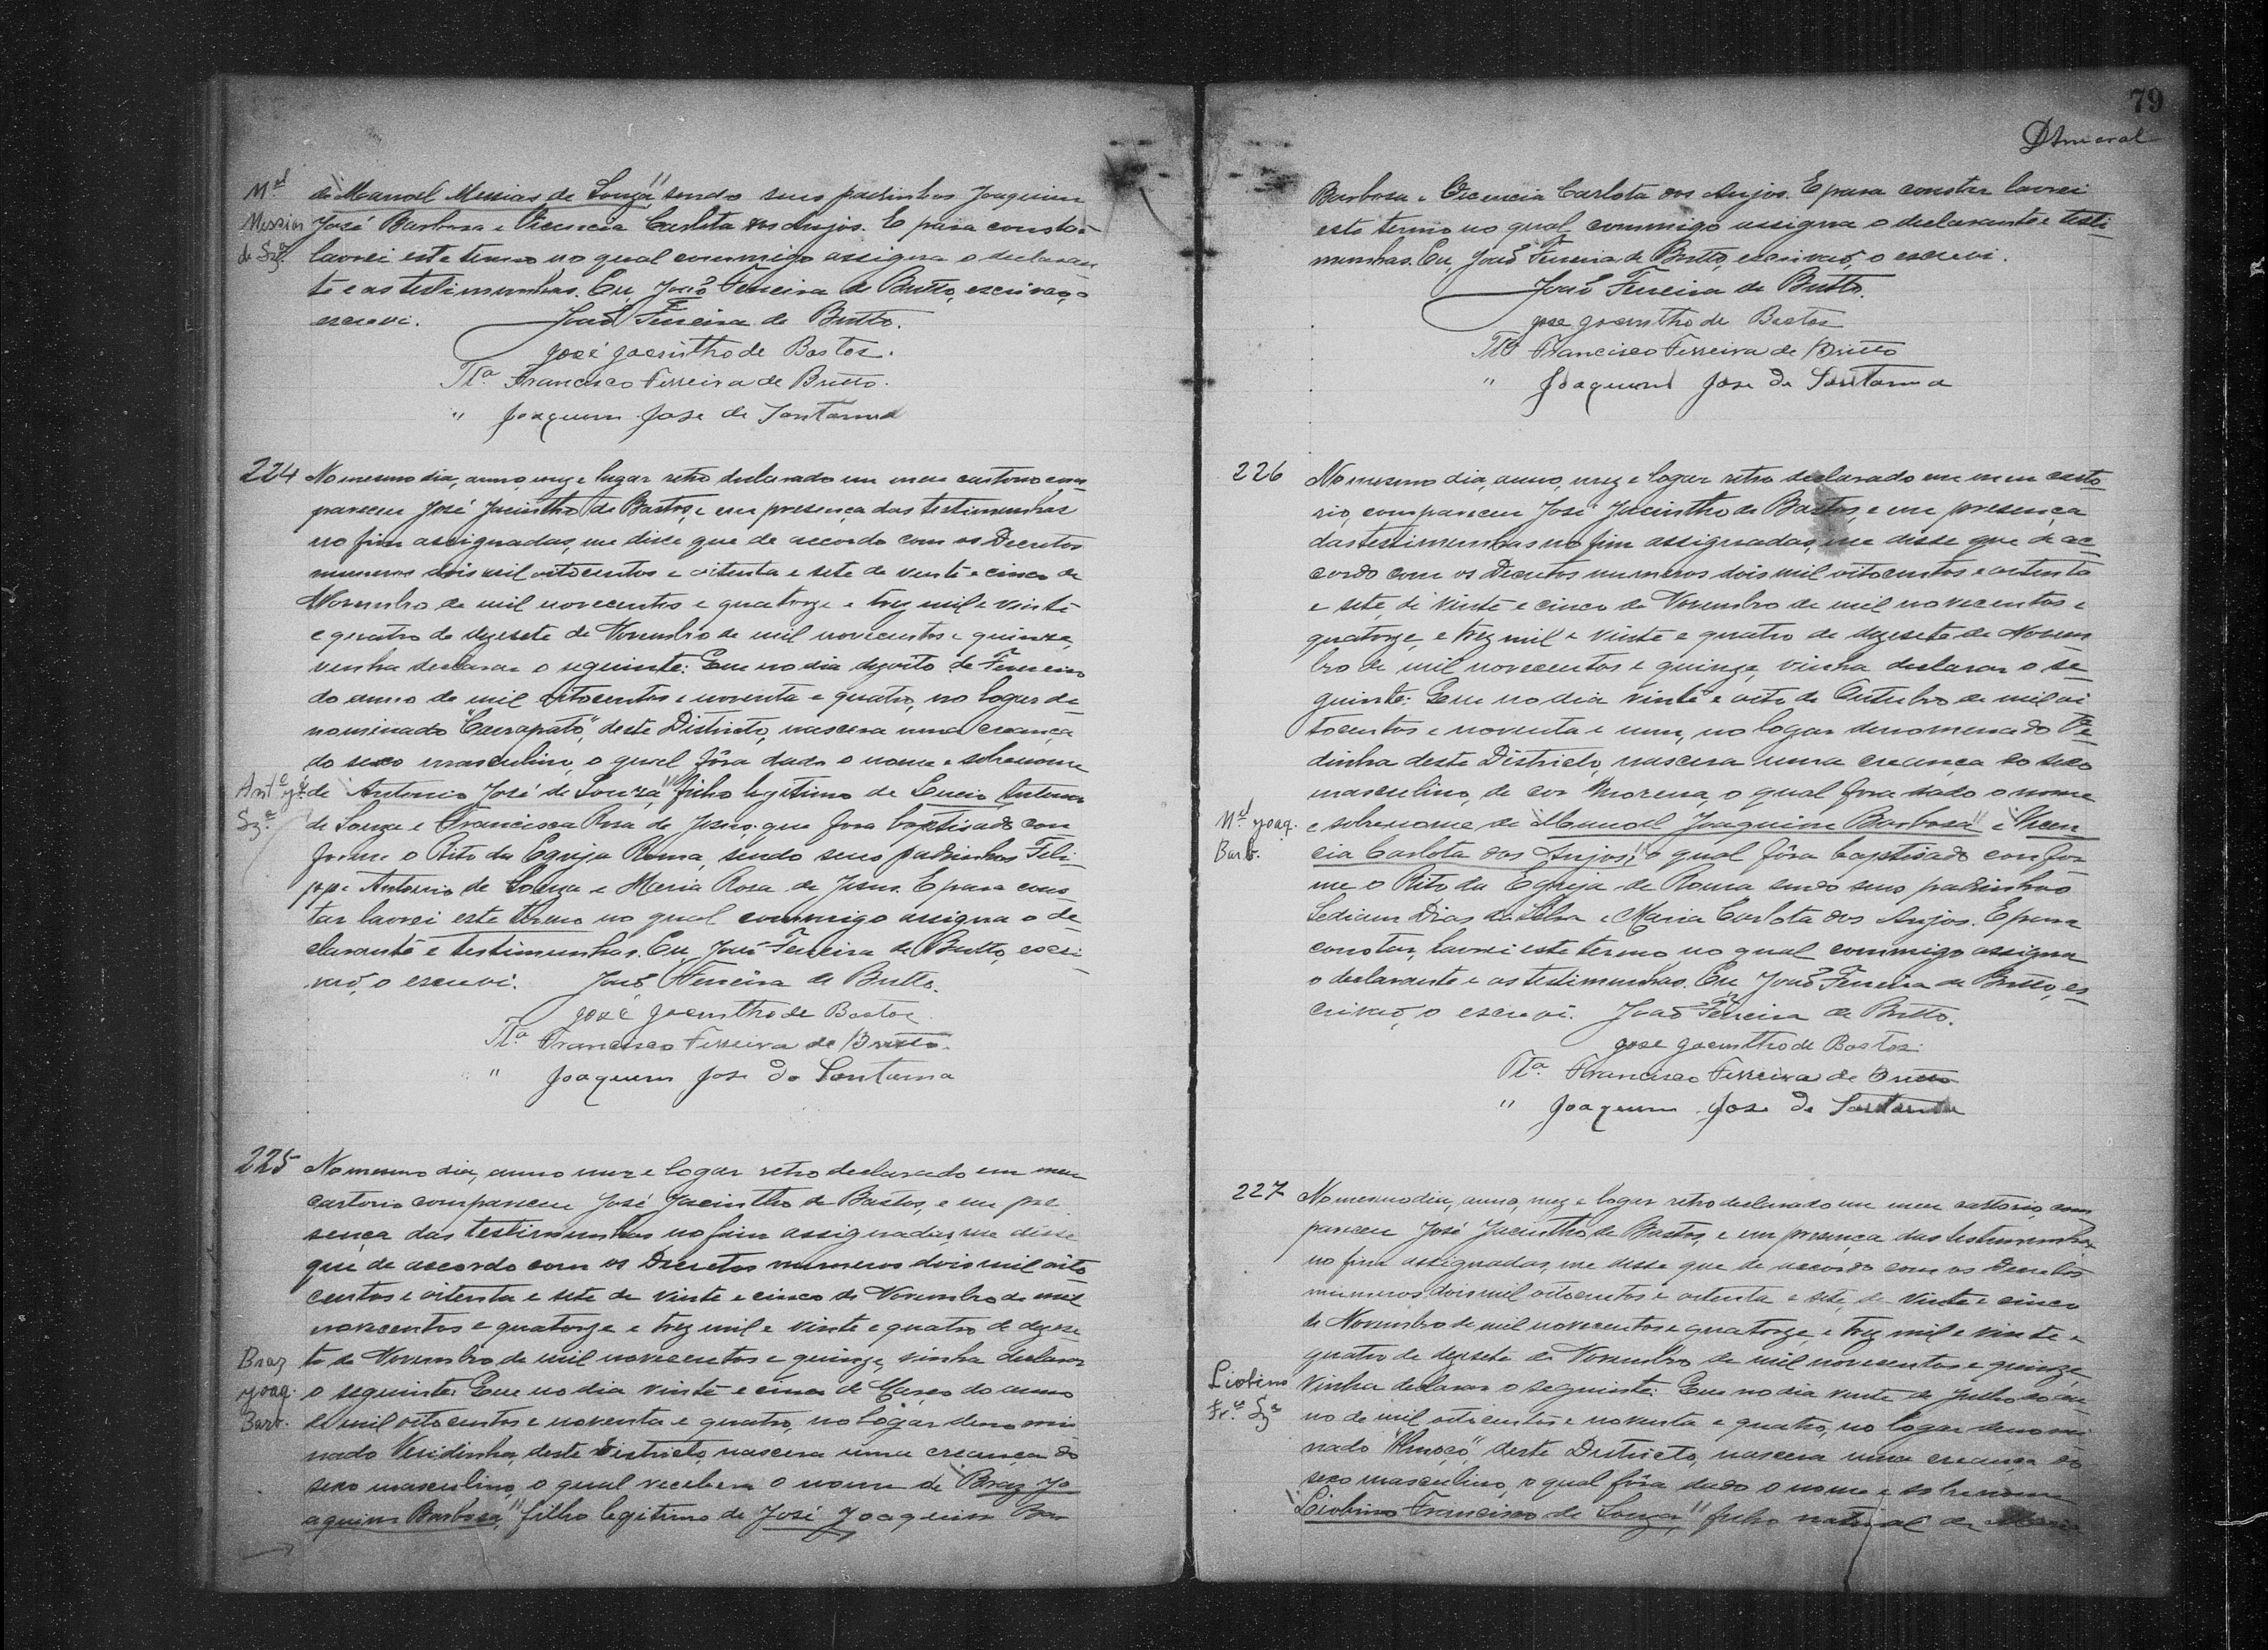 M.el
Messias
de Sz.a
de "Manoel Messias de Souza", sendo seus padrinhos Joaquim
José Barbosa e Vicencia Carlota dos Anjos. E para constar
lavrei este termo no qual commigo assigna o declaran
te e as testimunhas. Eu, João Ferreira de Britto, escrivão, o
escrevi. João Ferreira de Britto.
José Jacintho de Bastos.
Tta. Francisco Ferreira de Britto.
" Joaquim José de Santanna
224 No mesmo dia, anno, mez e lugar retro declarado em meu cartorio com
pareceu José Jacintho de Bastos, e em presença das testimunhas
no fim assignadas, me disse que de accordo com os Decretos
numeros dois mil oitocentos e oitenta e sete de vinte e cinco de
Novembro de mil novecentos e quatorze e trez mil e vinte
e quatro de dezesete de Novembro de mil novecentos e quinze,
vinha declarar o seguinte: Que no dia dezoito de Fevereiro
do anno de mil oitocentos e noventa e quatro, no logar de
nominado "Carrapato", deste Districto, nascera uma creança
do sexo masculino, o qual fôra dado o nome e sobrenome
Ant.o J.é
Sz.a
de Antonio José de Souza," filho legitimo de Lucio Antonio
de Souza e Francisca Rosa de Jesus, que fora baptisado con
forme o Rito da Egreja Roma, sendo seus padrinhos Feli
ppe Antonio de Souza e Maria Rosa de Jesus. E para cons
tar lavrei este termo no qual commigo assigna o de
clarante e testimunhas. Eu, João Ferreira de Britto, escri
vão, o escrevi. João Ferreira de Britto.
José Jacintho de Bastos
Tta. Francisco Ferreira de Britto.
" Joaquim José de Santanna
225 No mesmo dia, anno mez e logar retro declarado em meu
cartorio compareceu José Jacintho de Bastos, e em pre
sença das testimunhas no fim assignadas, me disse
que de accordo com os Decretos numeros dois mil oito
centos e oitenta e sete de vinte e cinco de Novembro de mil
novecentos e quatorze e trez mil e vinte e quatro de dezese
te de Novembro de mil novecentos e quinze, vinha declarar
Braz
Joaq.
Barb.
o seguinte: Que no dia vinte e cinco de Março do anno
de mil oitocentos e noventa e quatro, no logar denomi
nado Veridinha, deste Districto, nascera uma creança do
sexo masculino, o qual recebera o nome de "Braz Jo
aquim Barbosa," filho legitimo de José Joaquim Bar
79
DAmaral
Barbosa e Vicencia Carlota dos Anjos. E para constar lavrei
este termo no qual commigo assigna o declarante e testi
munhas. Eu, João Ferreira de Britto, escrivão, o escrevi.
João Ferreira de Britto.
José Jacintho de Bastos
Tta Francisco Ferreira de Britto
" Joaquim José de Santanna
226 No mesmo dia, anno, mez e logar retro declarado em meu carto
rio, compareceu José Jacintho de Bastos, e em presença
das testimunhas no fim assignadas, me disse que de ac
cordo com os Decretos numeros dois mil oitocentos e oitenta
e sete, de vinte e cinco de Novembro de mil novecentos e
quatorze, e trez mil e vinte e quatro de dezesete de Novem
bro de mil novecentos e quinze, vinha declarar o se
guinte: Que no dia vinte e oito de Outubro de mil oi
tocentos e noventa e um, no logar denominado Ve
dinha deste Districto, nascera uma creança do sexo
masculino, de cor morena, o qual fora dado o nome
M.el Joaq.
Barb.
e sobrenome de "Manoel Joaquim Barbosa" e "Vicen
cia Carlota dos Anjos," o qual fôra baptisado confor
me o Rito da Egreja de Roma sendo seus padrinhos
Dias da Silva e Maria Carlota dos Anjos. E para
constar, lavrei este termo no qual commigo assigna
o declarante e as testimunhas. Eu João Ferreira de Britto, es
crivão, o escrevi. João Ferreira de Britto.
José Jacintho de Bastos.
Tta. Francisco Ferreira de Britto
" Joaquim José de Santanna
227 No mesmo dia, anno, mez e logar retro declarado em meu cartorio, com
pareceu José Jacintho de Bastos, e em presença das testimunhas
no fim assignadas, me disse que de accordo com os Decretos
numeros dois mil oitocentos e oitenta e sete, de vinte e cinco
de Novembro de mil novecentos e quatorze, e trez mil e vinte e
quatro de dezesete de Novembro de mil novecentos e quinze,
Liobino
Fr.co Sz.a
vinha declarar o seguinte: Que no dia vinte de Julho do an
no de mil oitocentos e noventa e quatro, no logar denomi
nado deste Districto, nascera uma creança do
sexo masculino, o qual fôra dado o nome e sobrenome
"Liobino Francisco de Souza," filho natural de Maria